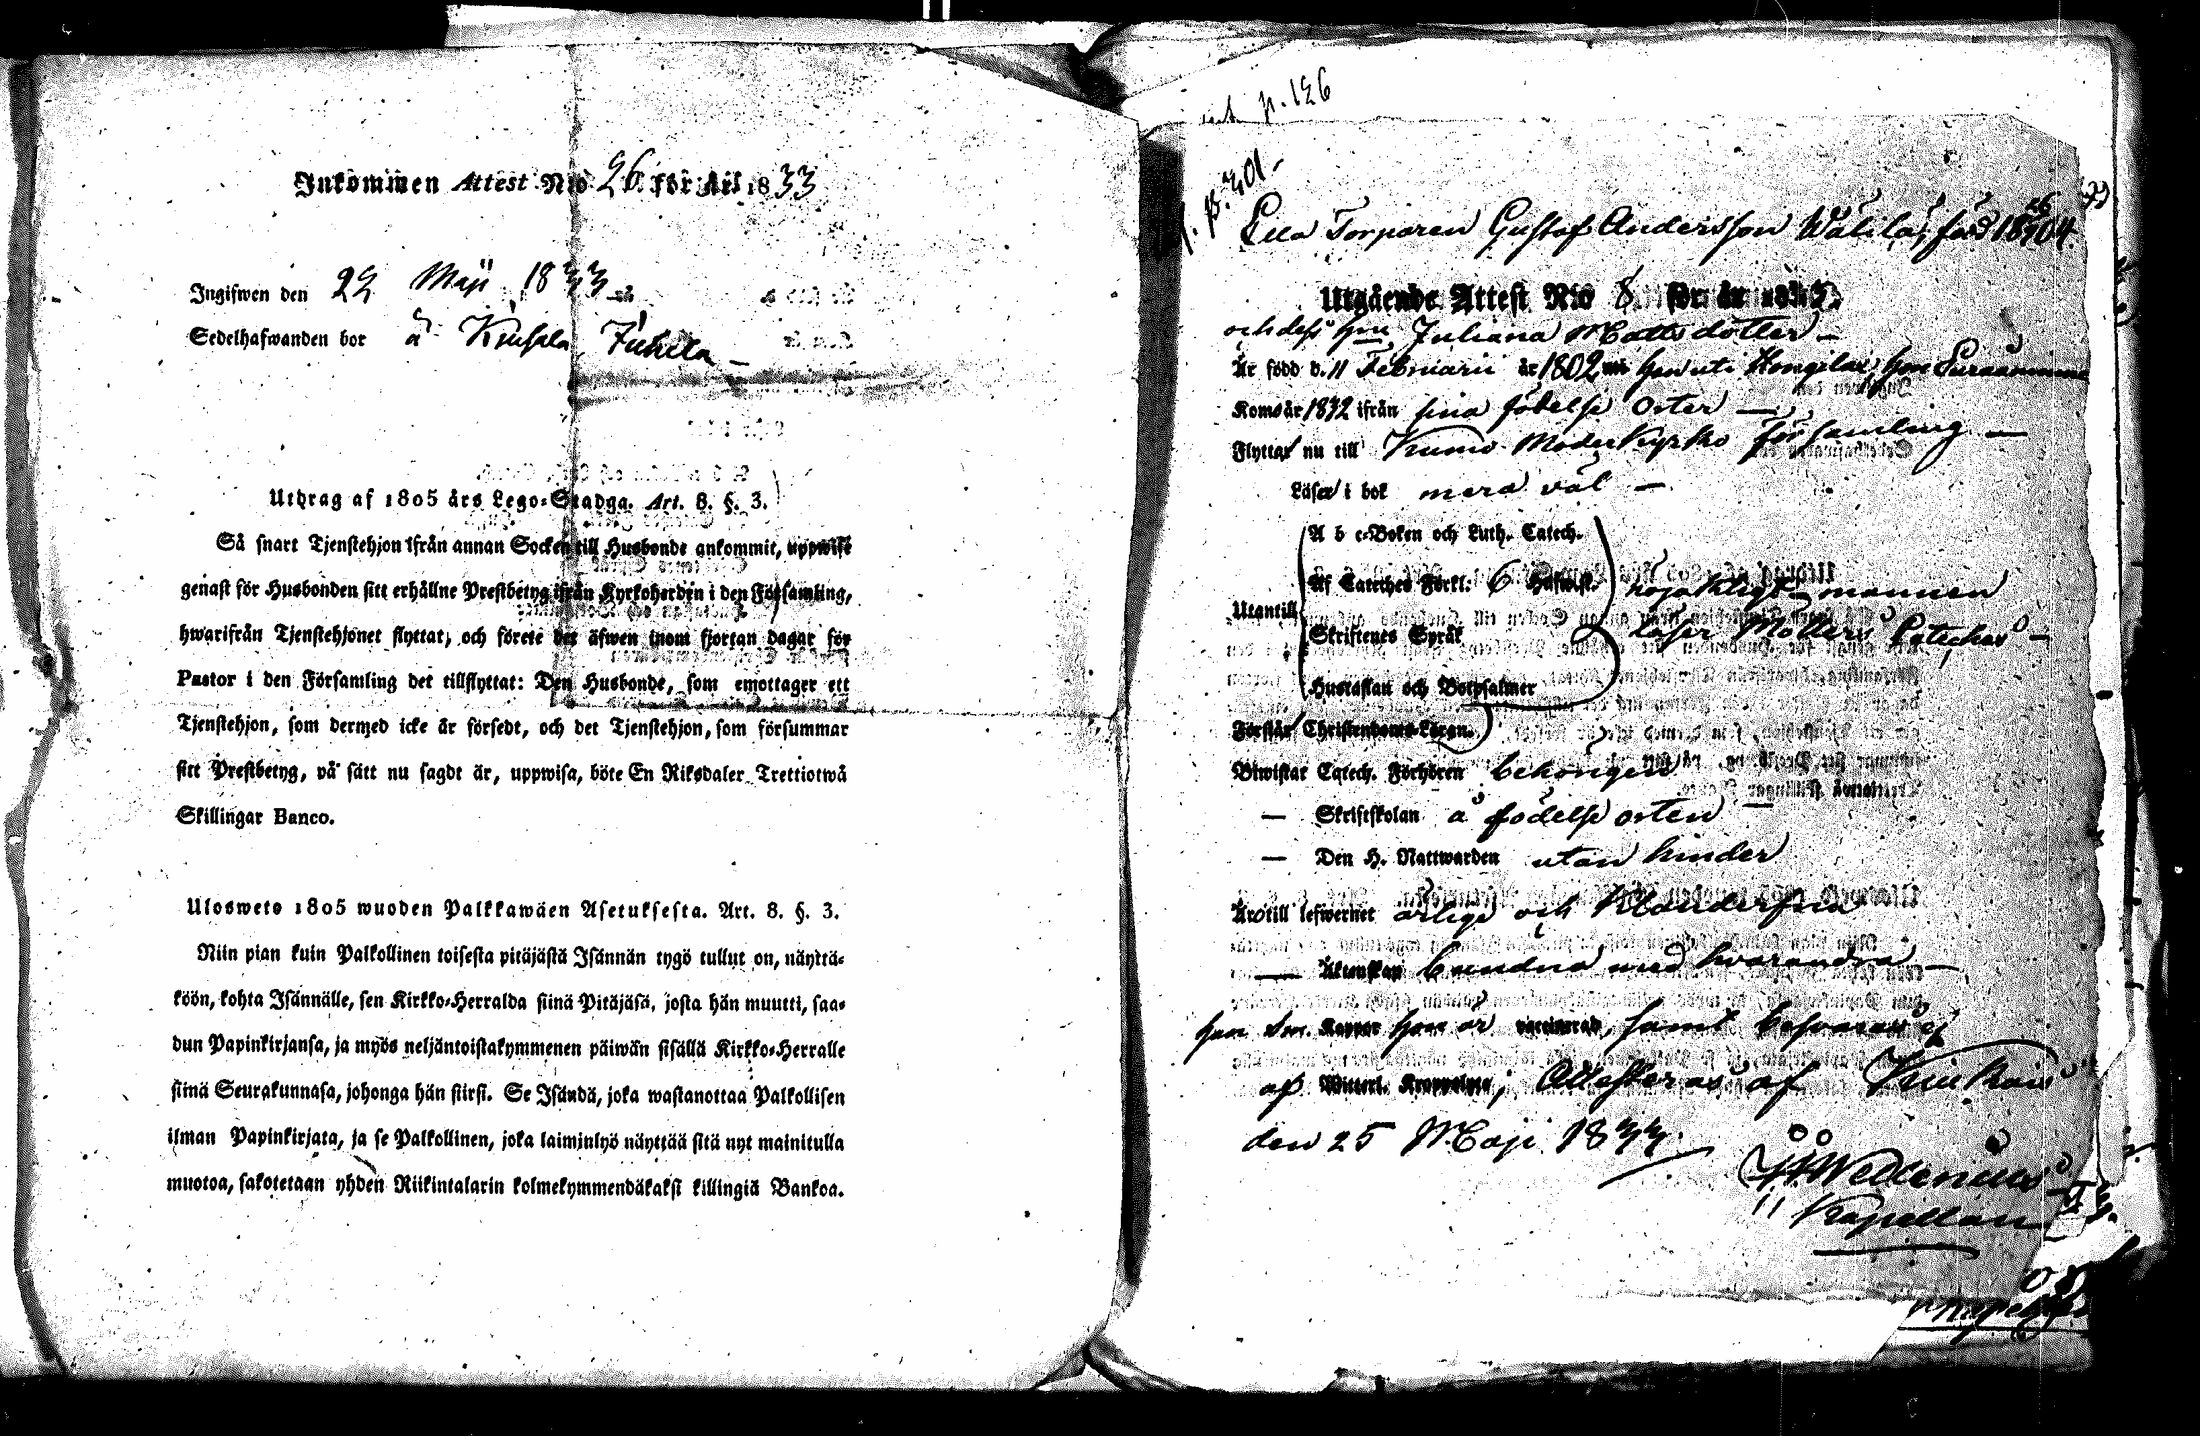 Inkommen Attest N:o 26 för År 1833
Ingifwen den 22 Maji 1833
Sedelhafwanden bor å
Utdrag af 1805 års Lego-Stadga. Art. 8. §. 3.
Så snart Tjenstehjon ifrån annan Socken till Husbonde ankommit, uppwise
genast för Husbonden sitt erhållne Prestbetyg ifrån Kyrkoherden i den Församling,
hwarifrån Tjenstehjonet flyttat, och förete det äfwen inom fjortan dagar för
Pastor i den Församling det tillflyttat: Den Husbonde, som emottager ett
Tjenstehjon, som dermed icke är försedt, och det Tjenstehjon, som försummar
sitt Prestbetyg, på sätt nu sagdt är, uppwisa, böte En Riksdaler Trettiotwå
Skillingar Banco.
Ulosweto 1805 wuoden Palkkawäen Asetuksesta. Art. 8. §. 3.
Niin pian kuin Palkollinen toisesta pitäjästä Isännän tygö tullut on, näyttä-
köön, kohta Isännälle, sen Kirkko-Herralda siinä Pitäjäsä, josta hän muutti, saa-
dun Papinkirjansa, ja myös neljäntoistakymmenen päiwän sisällä Kirkko-Herralle
siinä Seurakunnasa, johonga hän siirsi. Se Isändä, joka wastanottaa Palkollisen
ilman Papinkirjata, ja se Palkollinen, joka laiminlyö näyttää sitä nyt mainitulla
muotoa, sakotetaan yhden Riikintalarin kolmekymmendäkaksi killingiä Bankoa.
p. 126
p. 301
Torparen Gustaf Andersson Wälilä, född 1804
Utgående Attest N:o 8 för år 1833.
och dess hru Juliana Matts dotter
Är född d. 11 Februarii år 1802 han uti Kongilax, hon
Kom år 1832 ifrån sina födelse Orter
Flyttar nu till Kumo Moderkyrko församling
Läser i bok mera väl
A b c-Boken och Luth. Catech.
Af Cateches Förkl. 6 Hufwst.
Utantill
nöjaktigt mannen
Skriftenes Språk
läser Möllers Cateches
Hustaflan och Botpsalmer
Förstår Christendoms-Läran.
Biwistar Catech. Förhören behörigen
— Skriftskolan å födelse orten
— Den H. Nattwarden utan hinder
Äro till lefwernet ärlige och klanderfria
— Äktenskap bundna med hvarandra
han Sm. Koppor hon är vaccinerad, samt besväras ej
af Witterl. Kroppslyte; Attesteras af
den 25 Maji 1833.
Wedenius
Kapellan